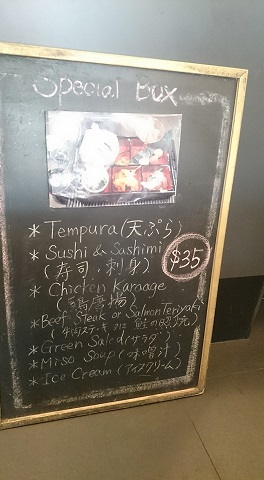 Special Box
* Tempura (天ぷら)
* Sushi & Sashimi
(寿司・刺身)
$35
* Chicken Karaage
(鶏唐揚)
* Beef Steak or Salmon Teriyaki
(牛肉ステーキ 又は 鮭の照焼)
* Green Salad (サラダ)
* Miso Soup (味噌汁)
* Ice Cream (アイスクリーム)